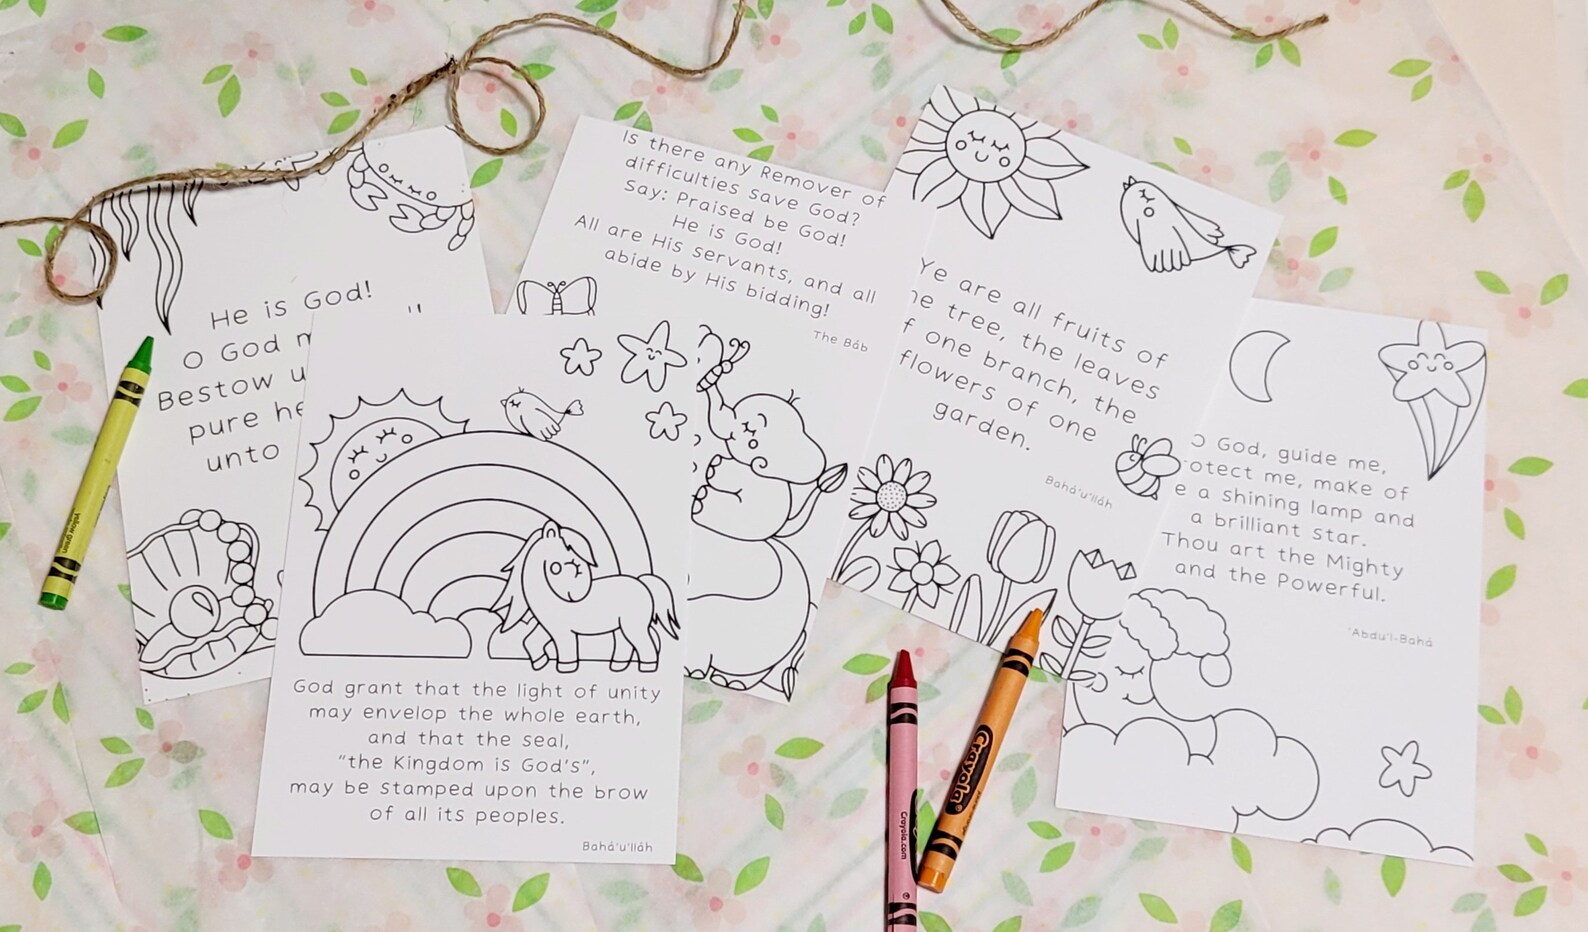 He is God!
O God
Bestow
pure
unto
Is there any Remover of
difficulties save God?
Say: Praised be God!
He is God!
All are His servants, and all
abide by His bidding!
The Báb
God grant that the light of unity
may envelop the whole earth,
and that the seal,
“the Kingdom is God's”,
may be stamped upon the brow
of all its peoples.
Bahá'u'lláh
Ye are all fruits of
tree, the leaves
one branch, the
flowers of one
garden.
Bahá'u'lláh
O God, guide me,
me, make of
a shining lamp and
a brilliant star.
Thou art the Mighty
and the Powerful.
'Abdu'l-Bahá
yellow green
Crayola.com
Crayola